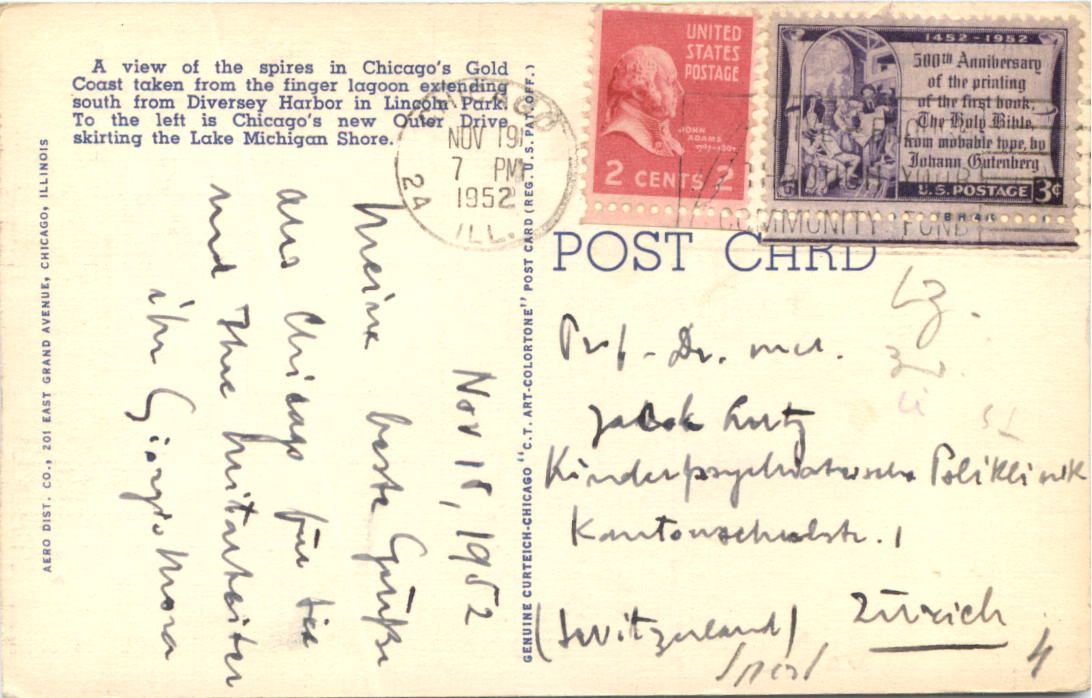 A view of the spires in Chicago's Gold
Coast taken from the finger lagoon extending
south from Diversey Harbor in Lincoln Park.
To the left is Chicago's new Outer Drive
skirting the Lake Michigan Shore.
AERO DIST. CO., 201 EAST GRAND AVENUE, CHICAGO, ILLINOIS
CHICAGO
NOV 19
7 PM
1952
ILL.
24
UNITED
STATES
POSTAGE
JOHN
ADAMS
1797-1801
2 CENTS 2
1452-1952
500th Anniversary
of the printing
of the first book,
The Holy Bible,
from movable type, by
Johann Gutenberg
U.S. POSTAGE 3¢
COMMUNITY FUND
GENUINE CURTEICH-CHICAGO "C.T. ART-COLORTONE" POST CARD (REG. U.S. PAT. OFF.)
POST CARD
Nov 18, 1952
Meine beste Grüße
aus Chicago für Sie
und Ihre Mitarbeiter
ihr Giorgio Mora
Prof. Dr. med.
Jakob Lutz
Kinderpsychiatrische Poliklinik
Kantonschulstr. 1
Zürich
(Switzerland)